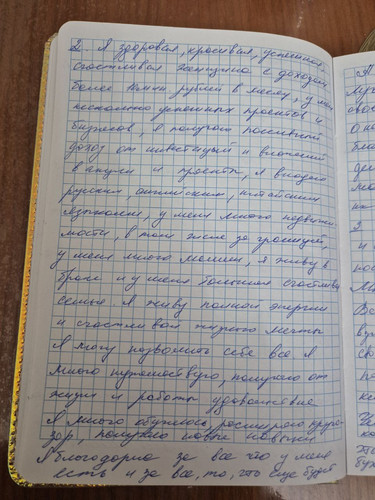 2. Я здоровая, красивая, успешная
счастливая женщина с доходом
более млн. рублей в месяц, у меня
несколько успешных проектов и
бизнесов, я получаю пассивный
доход от инвестиций и вложений
в акции и проекты, я владею
русским, английским, китайским
языками, у меня много недвижи
мости, в том числе за границей,
у меня много машин, я живу в
браке и у меня большая счастливая
семья. Я живу полной энергии
и счастливой жизнью мечты
Я могу позволить себе все я
много путешествую, получаю от
жизни и работы удовольствие
Я много обучаюсь, расширяю круго
зор, получаю новые навыки
Я благодарна за все что у меня
есть и за все, то, что еще будет